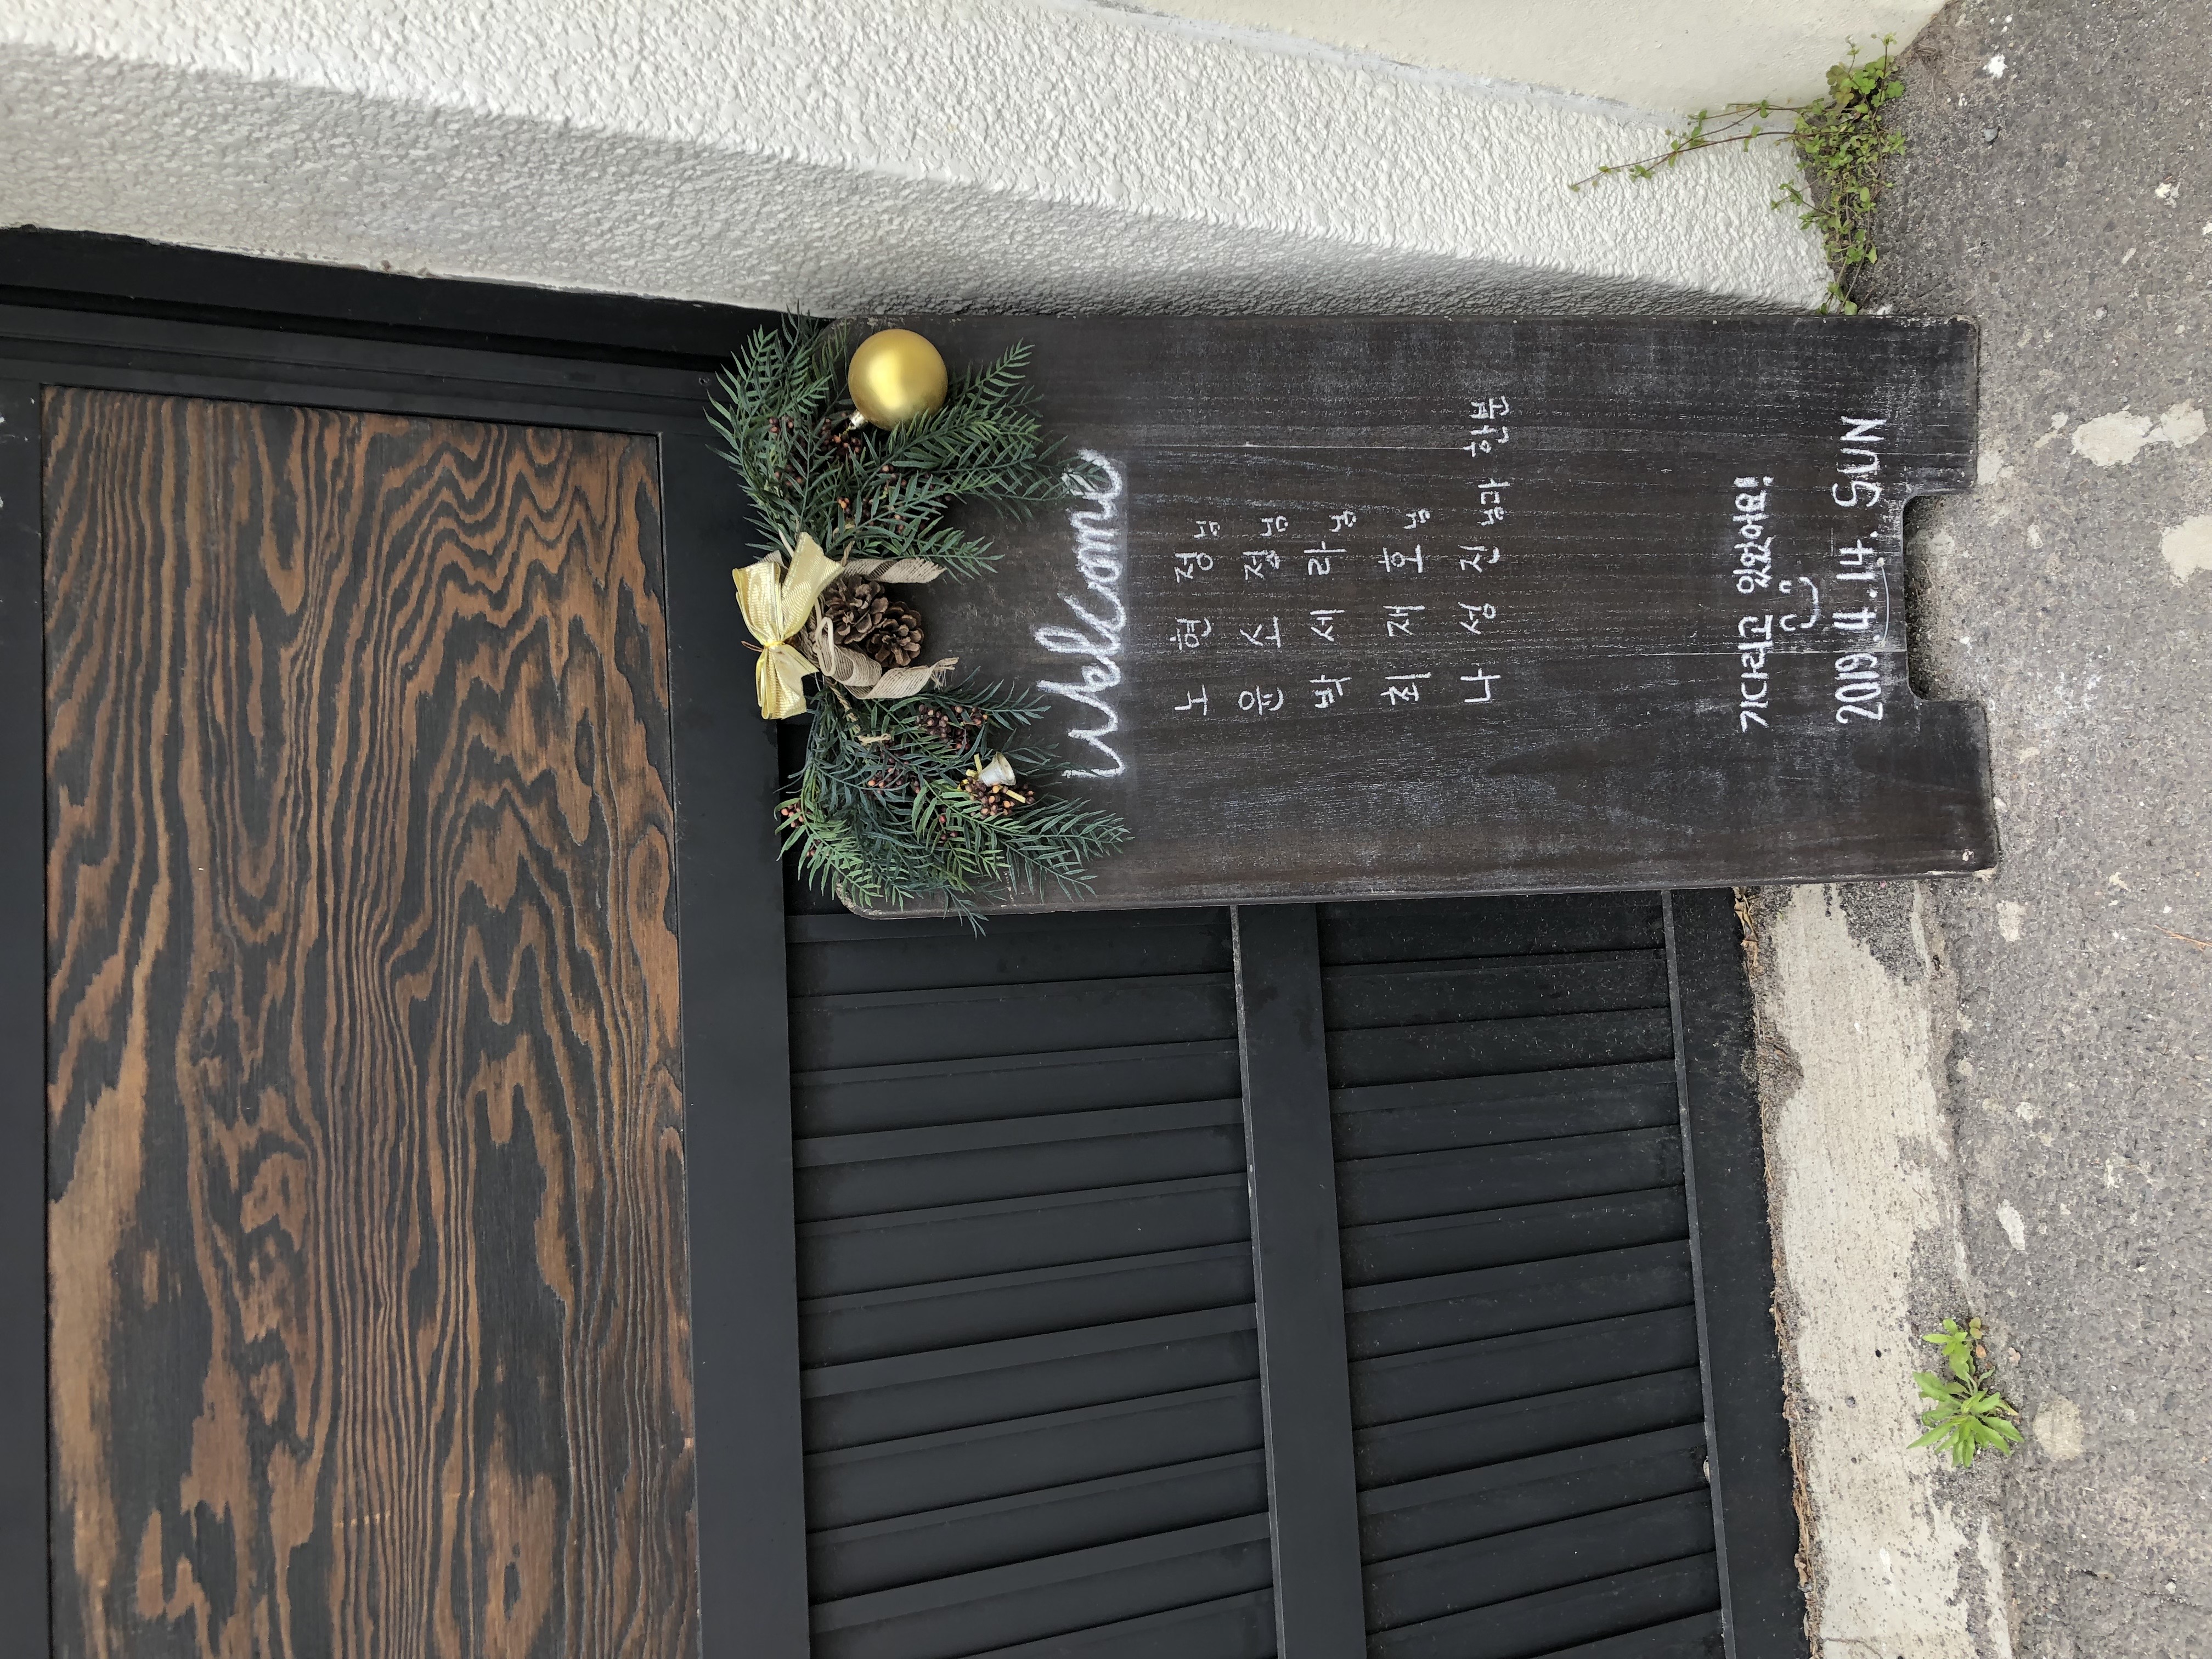 Welcome
노 현 정님
윤 소 정님
박 세 라님
최 재 호님
나 성 진님과 한분
기다리고 있었어요!
2019.4.14. SUN